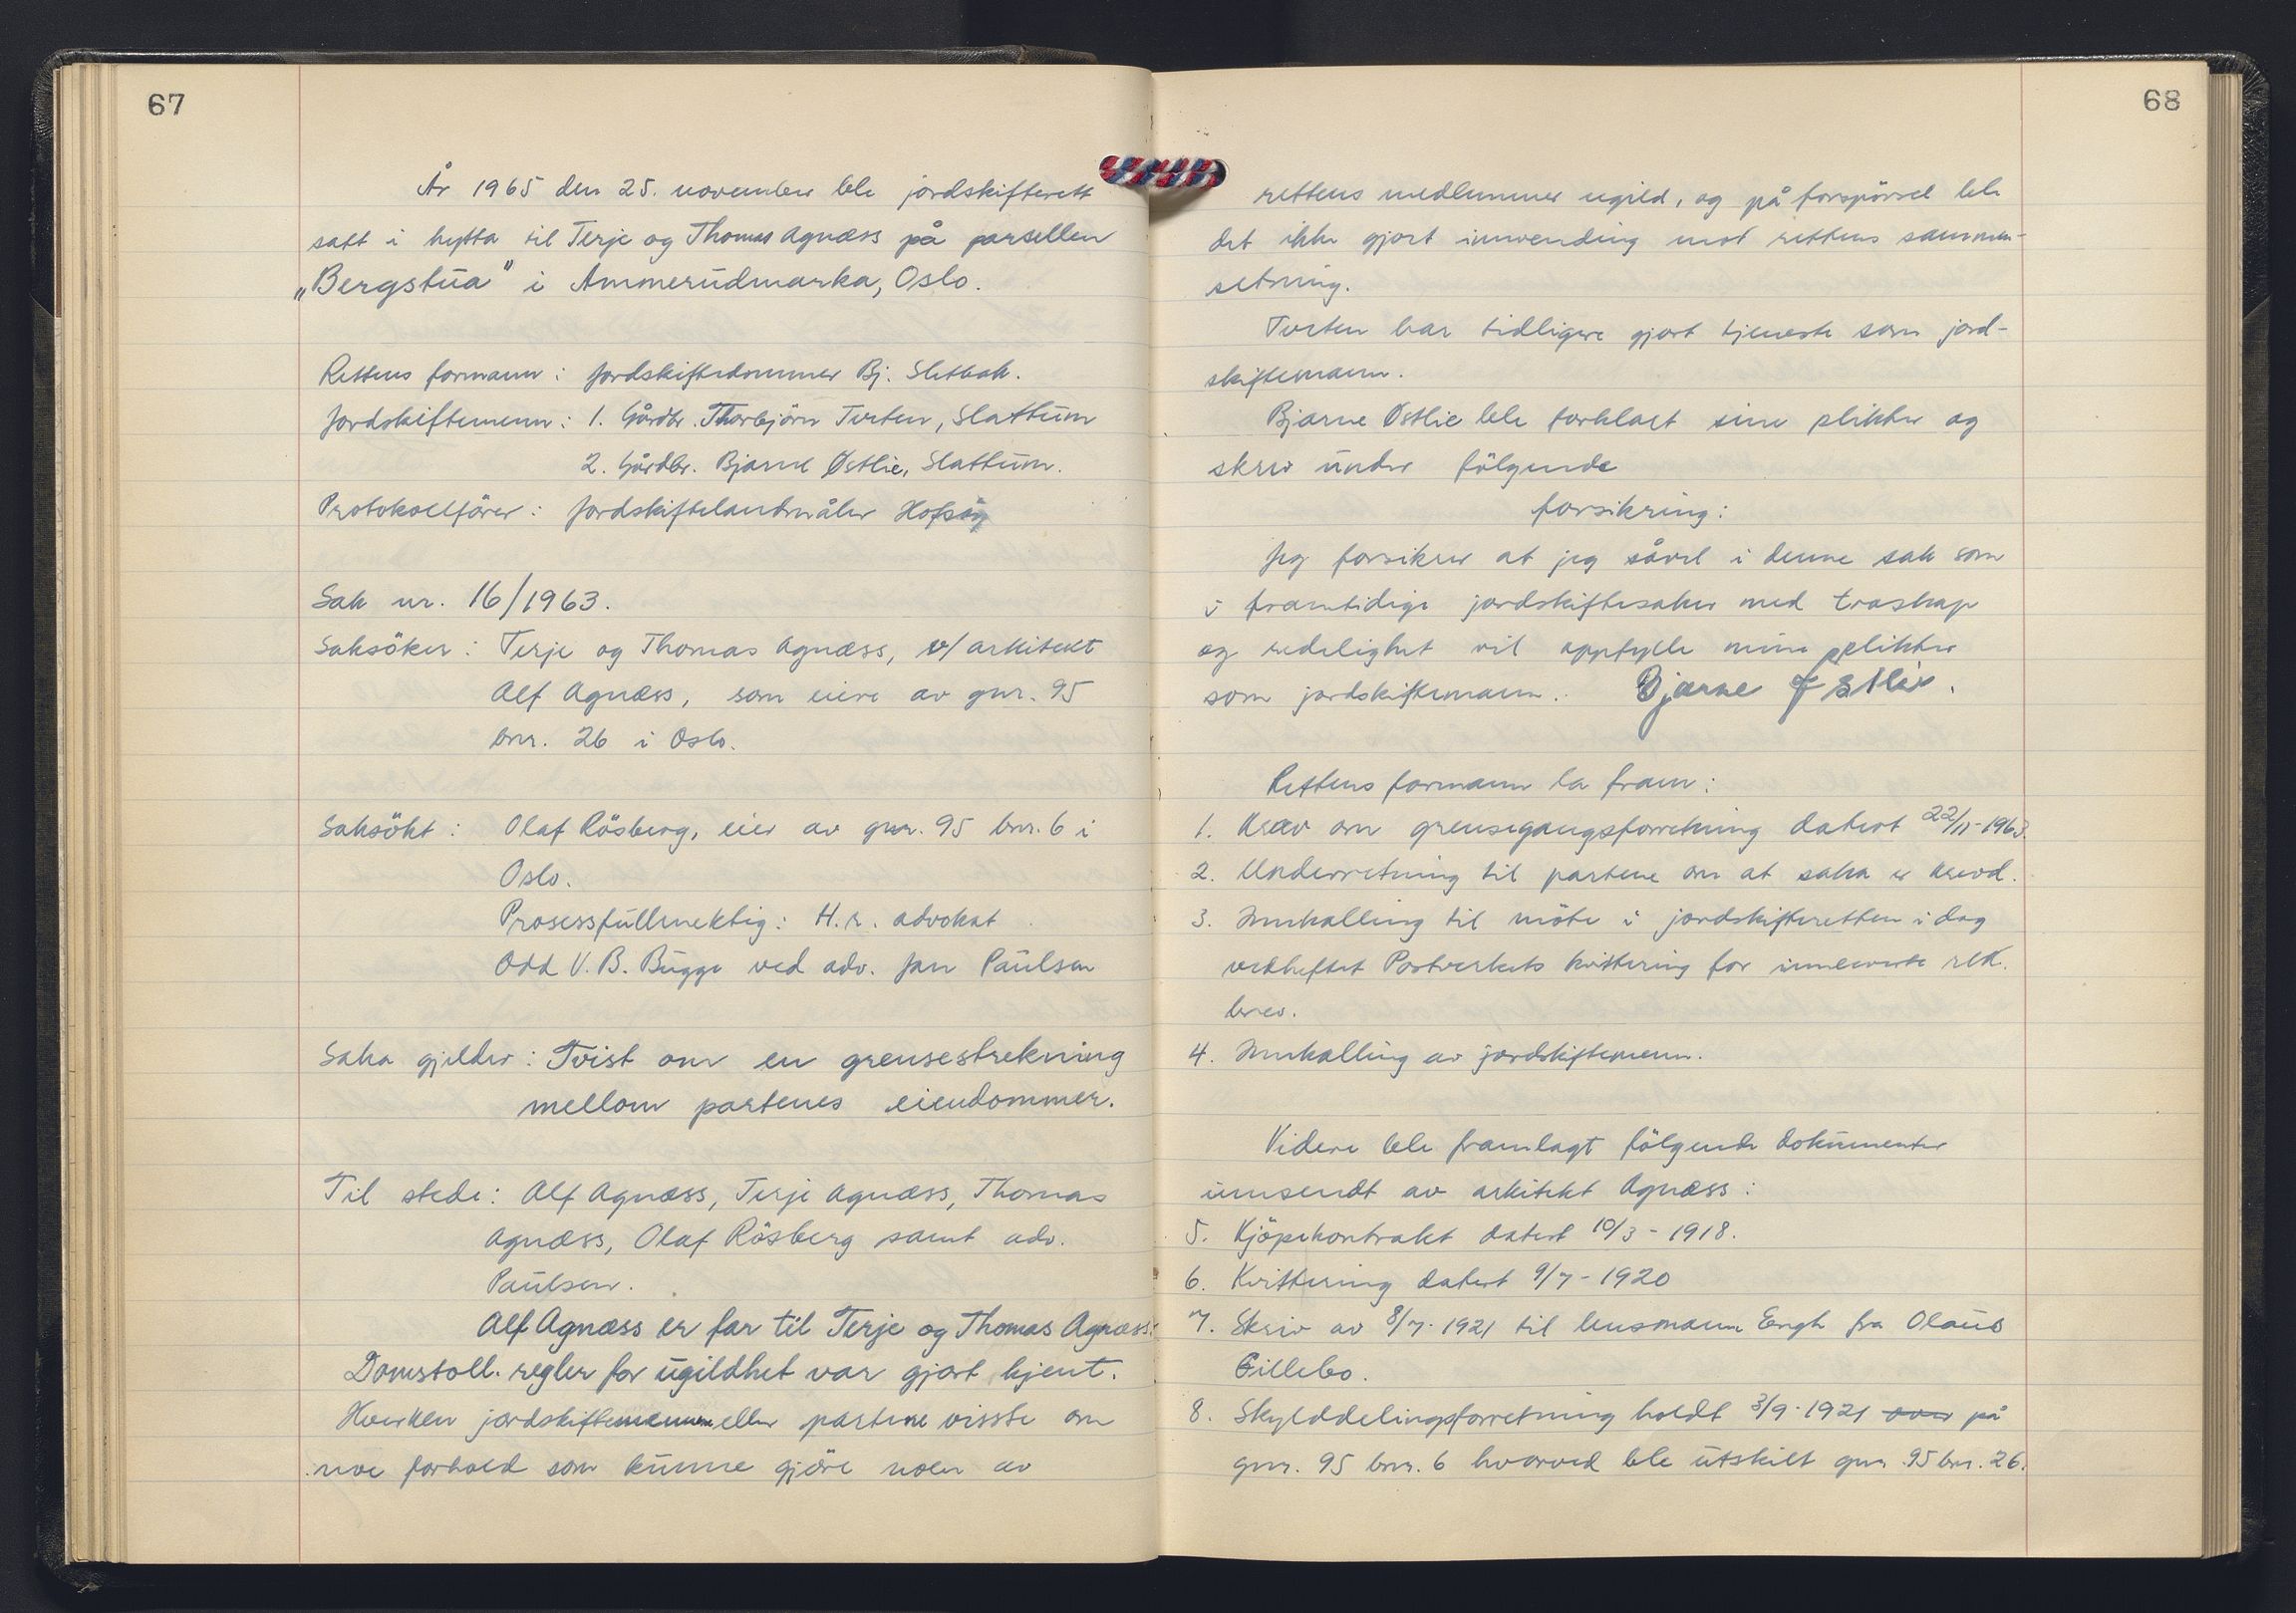 67
År 1965 den 25. november ble jordskifterett
satt i hytta til Terje og Thomas Agnæss på parsellen
„Bergstua” i Ammerudmarka, Oslo.
Rettens formann: Jordskiftedommer Bj. Sletbak.
Jordskiftemenn: 1. Gårdbr. Thorbjörn Tveten, Slattum
2. Gårdbr. Bjarne Østlie, Slattum.
Protokollförer: Jordskiftelandmåler
Sak nr. 16/1963.
Saksöker: Terje og Thomas Agnæss, v/ arkitekt
Alf Agnæss, som eiere av gnr. 95
bnr. 26 i Oslo.
Saksökt: Olaf Rösberg, eier av gnr. 95 bnr. 6 i
Oslo.
Prosessfullmektig: H.r. advokat
Odd V. B. Bugge ved adv. Jan Paulsen
Saka gjelder: Tvist om en grensestrekning
mellom partenes eiendommer.
Til stede: Alf Agnæss, Terje Agnæss, Thomas
Agnæss, Olaf Rösberg samt adv.
Paulsen.
Alf Agnæss er far til Terje og Thomas Agnæss.
Domstoll. regler for ugildhet var gjort kjent.
Hverken jordskiftemennene eller partene visste om
noe forhold som kunne gjöre noen av
68
rettens medlemmer ugild, og på forspörsel ble
det ikke gjort innvending mot rettens sammen-
setning.
Tveten har tidligere gjort tjeneste som jord-
skiftemann.
Bjarne Østlie ble forklart sine plikter og
skrev under fölgende
forsikring:
Jeg forsikrer at jeg såvel i denne sak som
i framtidige jordskiftesaker med troskap
og redelighet vil oppfylle mine plikter
som jordskiftemann. Bjarne Østlie.
Rettens formann la fram:
1. Krav om grensegangsforretning datert 22/11-1963.
2. Underretning til partene om at saka er krevd.
3. Innkalling til möte i jordskifteretten i dag
vedheftet Postverkets kvittering for innleverte rek.
brev.
4. Innkalling av jordskiftemenn.
Videre ble framlagt fölgende dokumenter
innsendt av arkitekt Agnæss:
5. Kjöpekontrakt datert 10/3-1918.
6. Kvittering datert 9/7-1920
7. Skriv av 8/7-1921 til lensmann Engh fra Olaus
Gillebo.
8. Skylddelingsforretning holdt 3/9-1921 over på
gnr. 95 bnr. 6 hvorved ble utskilt gnr. 95 bnr. 26.